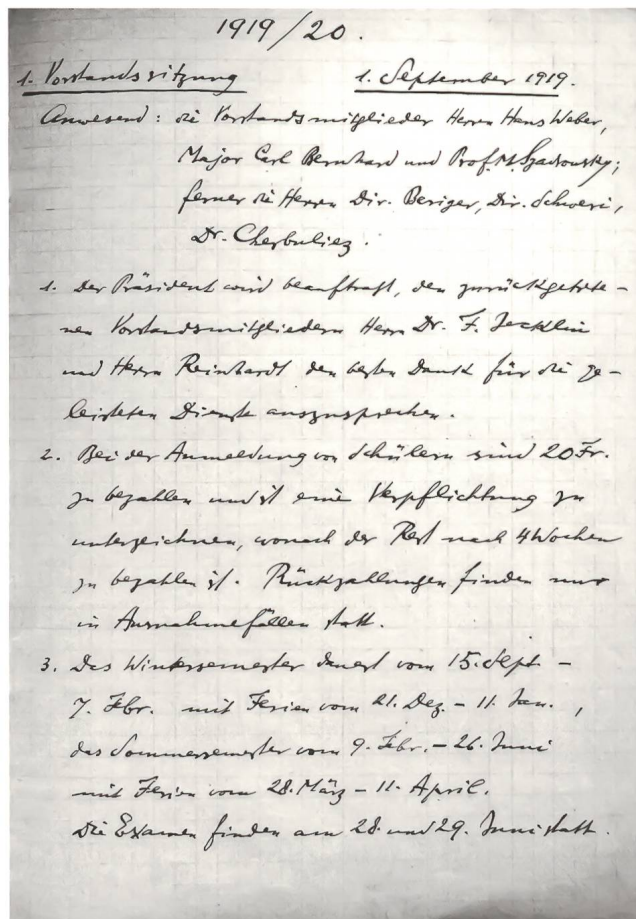 1919/20.
1. Vorstandssitzung 1. September 1919.
Anwesend: die Vorstandsmitglieder Herren Hans Weber,
Major Carl Bernhard und Prof. M. Szadrowsky;
ferner die Herren Dir. Beriger, Dir. Schweri,
Dr. Cherbuliez.
1. Der Präsident wird beauftragt, den zurückgetrete-
nen Vorstandsmitgliedern Herrn Dr. F. Jecklin
und Herrn Reinhardt den besten Dank für die ge-
leisteten Dienste auszusprechen.
2. Bei der Anmeldung von Schülern sind 20 Fr.
zu bezahlen und ist eine Verpflichtung zu
unterzeichnen, wonach der Rest nach 4 Wochen
zu bezahlen ist. Rückzahlungen finden nur
in Ausnahmefällen statt.
3. Das Wintersemester dauert vom 15. Sept. -
7. Febr. mit Ferien vom 21. Dez. - 11. Jan.,
das Sommersemester vom 9. Febr. - 26. Juni
mit Ferien vom 28. März - 11. April.
Die Examen finden am 28. und 29. Juni statt.